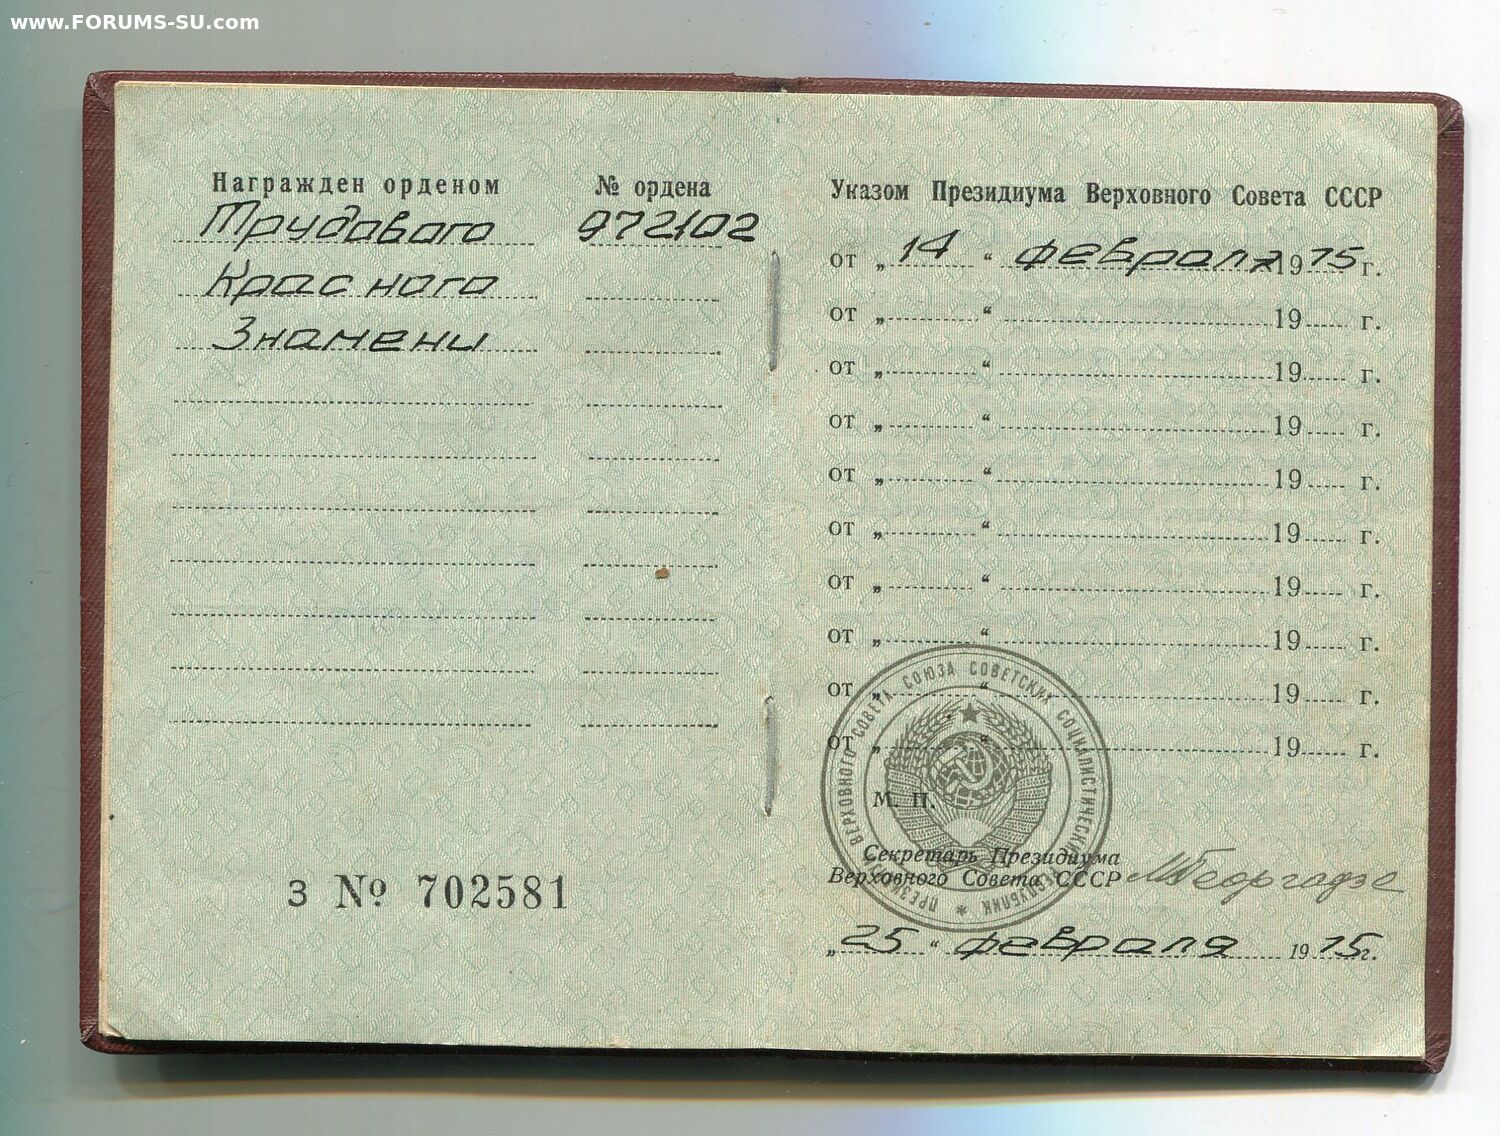 www.FORUMS-SU.com
Награжден орденом № ордена
Трудового 972102
Красного
Знамени
З № 702581
Указом Президиума Верховного Совета СССР
от „ 14 “ февраля 1975 г.
от „ “ 19 г.
от „ “ 19 г.
от „ “ 19 г.
от „ “ 19 г.
от „ “ 19 г.
от „ “ 19 г.
от „ “ 19 г.
от „ “ 19 г.
от „ “ 19 г.
ПРЕЗИДИУМ ВЕРХОВНОГО СОВЕТА СОЮЗА СОВЕТСКИХ СОЦИАЛИСТИЧЕСКИХ РЕСПУБЛИК
М. П.
Секретарь Президиума
Верховного Совета СССР МГеоргадзе
„ 25 “ февраля 1975 г.